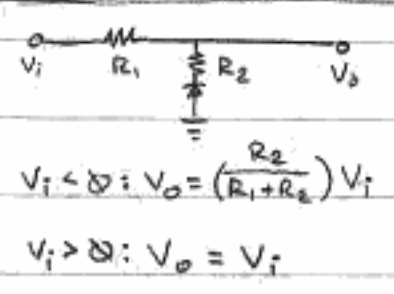 Vi R1 R2 Vo
Vi < 0 : Vo = (R2 / (R1 + R2)) Vi
Vi > 0 : Vo = Vi